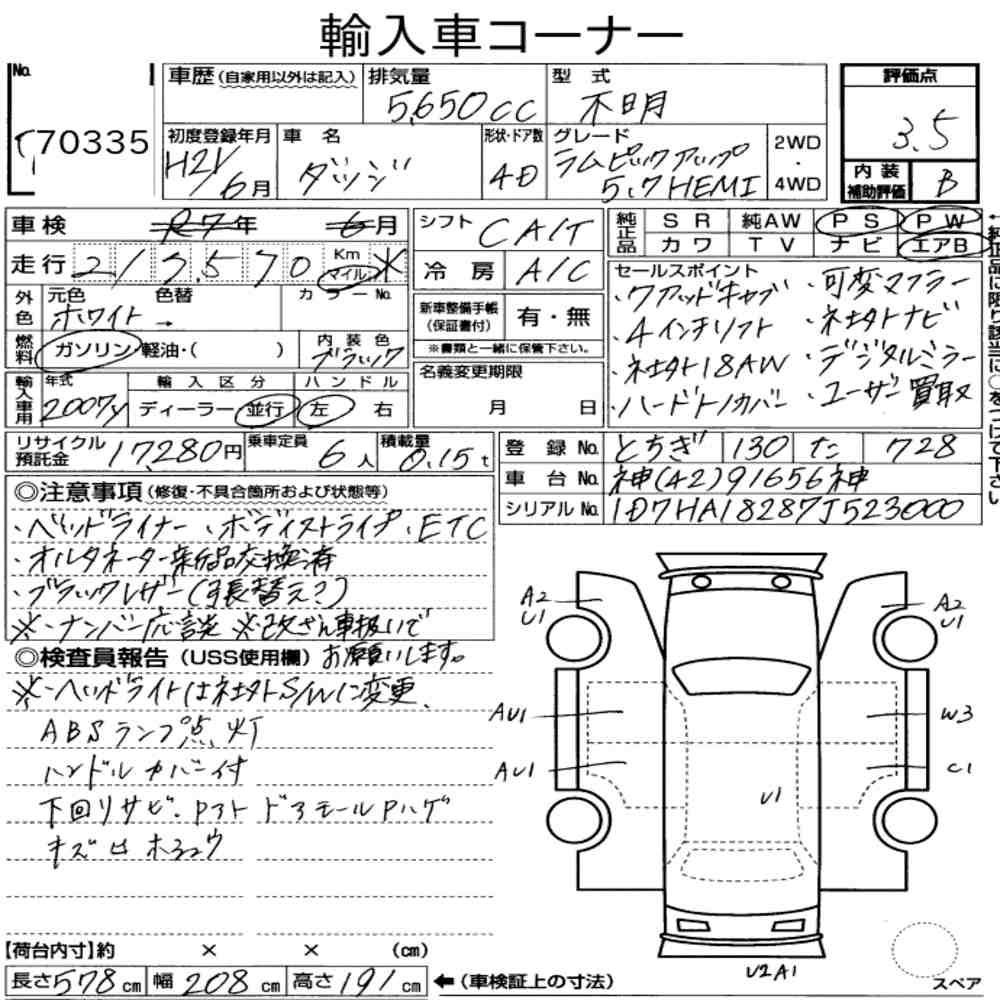 輸入車コーナー
No.
70335
車歴 (自家用以外は記入)
排気量
5,650cc
型式
不明
評価点
3.5
初度登録年月
H21/6月
車名
ダッジ
形状・ドア数
4D
グレード
ラムピックアップ
5.7HEMI
2WD
・
4WD
内装
補助評価
B
車検 R7年 6月
シフト CA/T
純正品
SR 純AW PS PW
カワ TV ナビ エアB
←純正品に限り該当に○をつけて下さい
走行 217,570 Km マイル ※
冷房 A/C
外色
元色 色替 カラーNo.
ホワイト →
新車整備手帳
(保証書付)
有・無
※書類と一緒に保管下さい。
燃料
ガソリン・軽油・( )
内装色
ブラック
名義変更期限
月 日
輸入車用
年式 輸入区分 ハンドル
2007y ディーラー 並行 左 右
セールスポイント
・クアッドキャブ ・可変マフラー
・4インチリフト ・社外ナビ
・社外18AW ・デジタルミラー
・ハードトノカバー ・ユーザー買取
リサイクル
預託金
17,280円
乗車定員
6人
積載量
0.15t
登録No. とちぎ 130 た 728
車台No. 神(42)91656神
シリアルNo. 1D7HA18287J523000
◎注意事項 (修復・不具合箇所および状態等)
・ベッドライナー、ボディストライプ・ETC
・オルタネーター新品交換済
・ブラックレザー(張替え?)
※ナンバー応談 ※改ざん車扱いで
お願いします。
◎検査員報告 (USS使用欄)
※ヘッドライトは社外S/Wに変更
ABSランプ点灯
ハンドルカバー付
下回りサビ、
【荷台内寸】約 × × (cm)
長さ578cm 幅208cm 高さ191cm ←(車検証上の寸法)
A2
U1
A2
U1
AU1
W3
AU1
C1
U1
U2A1
スペア